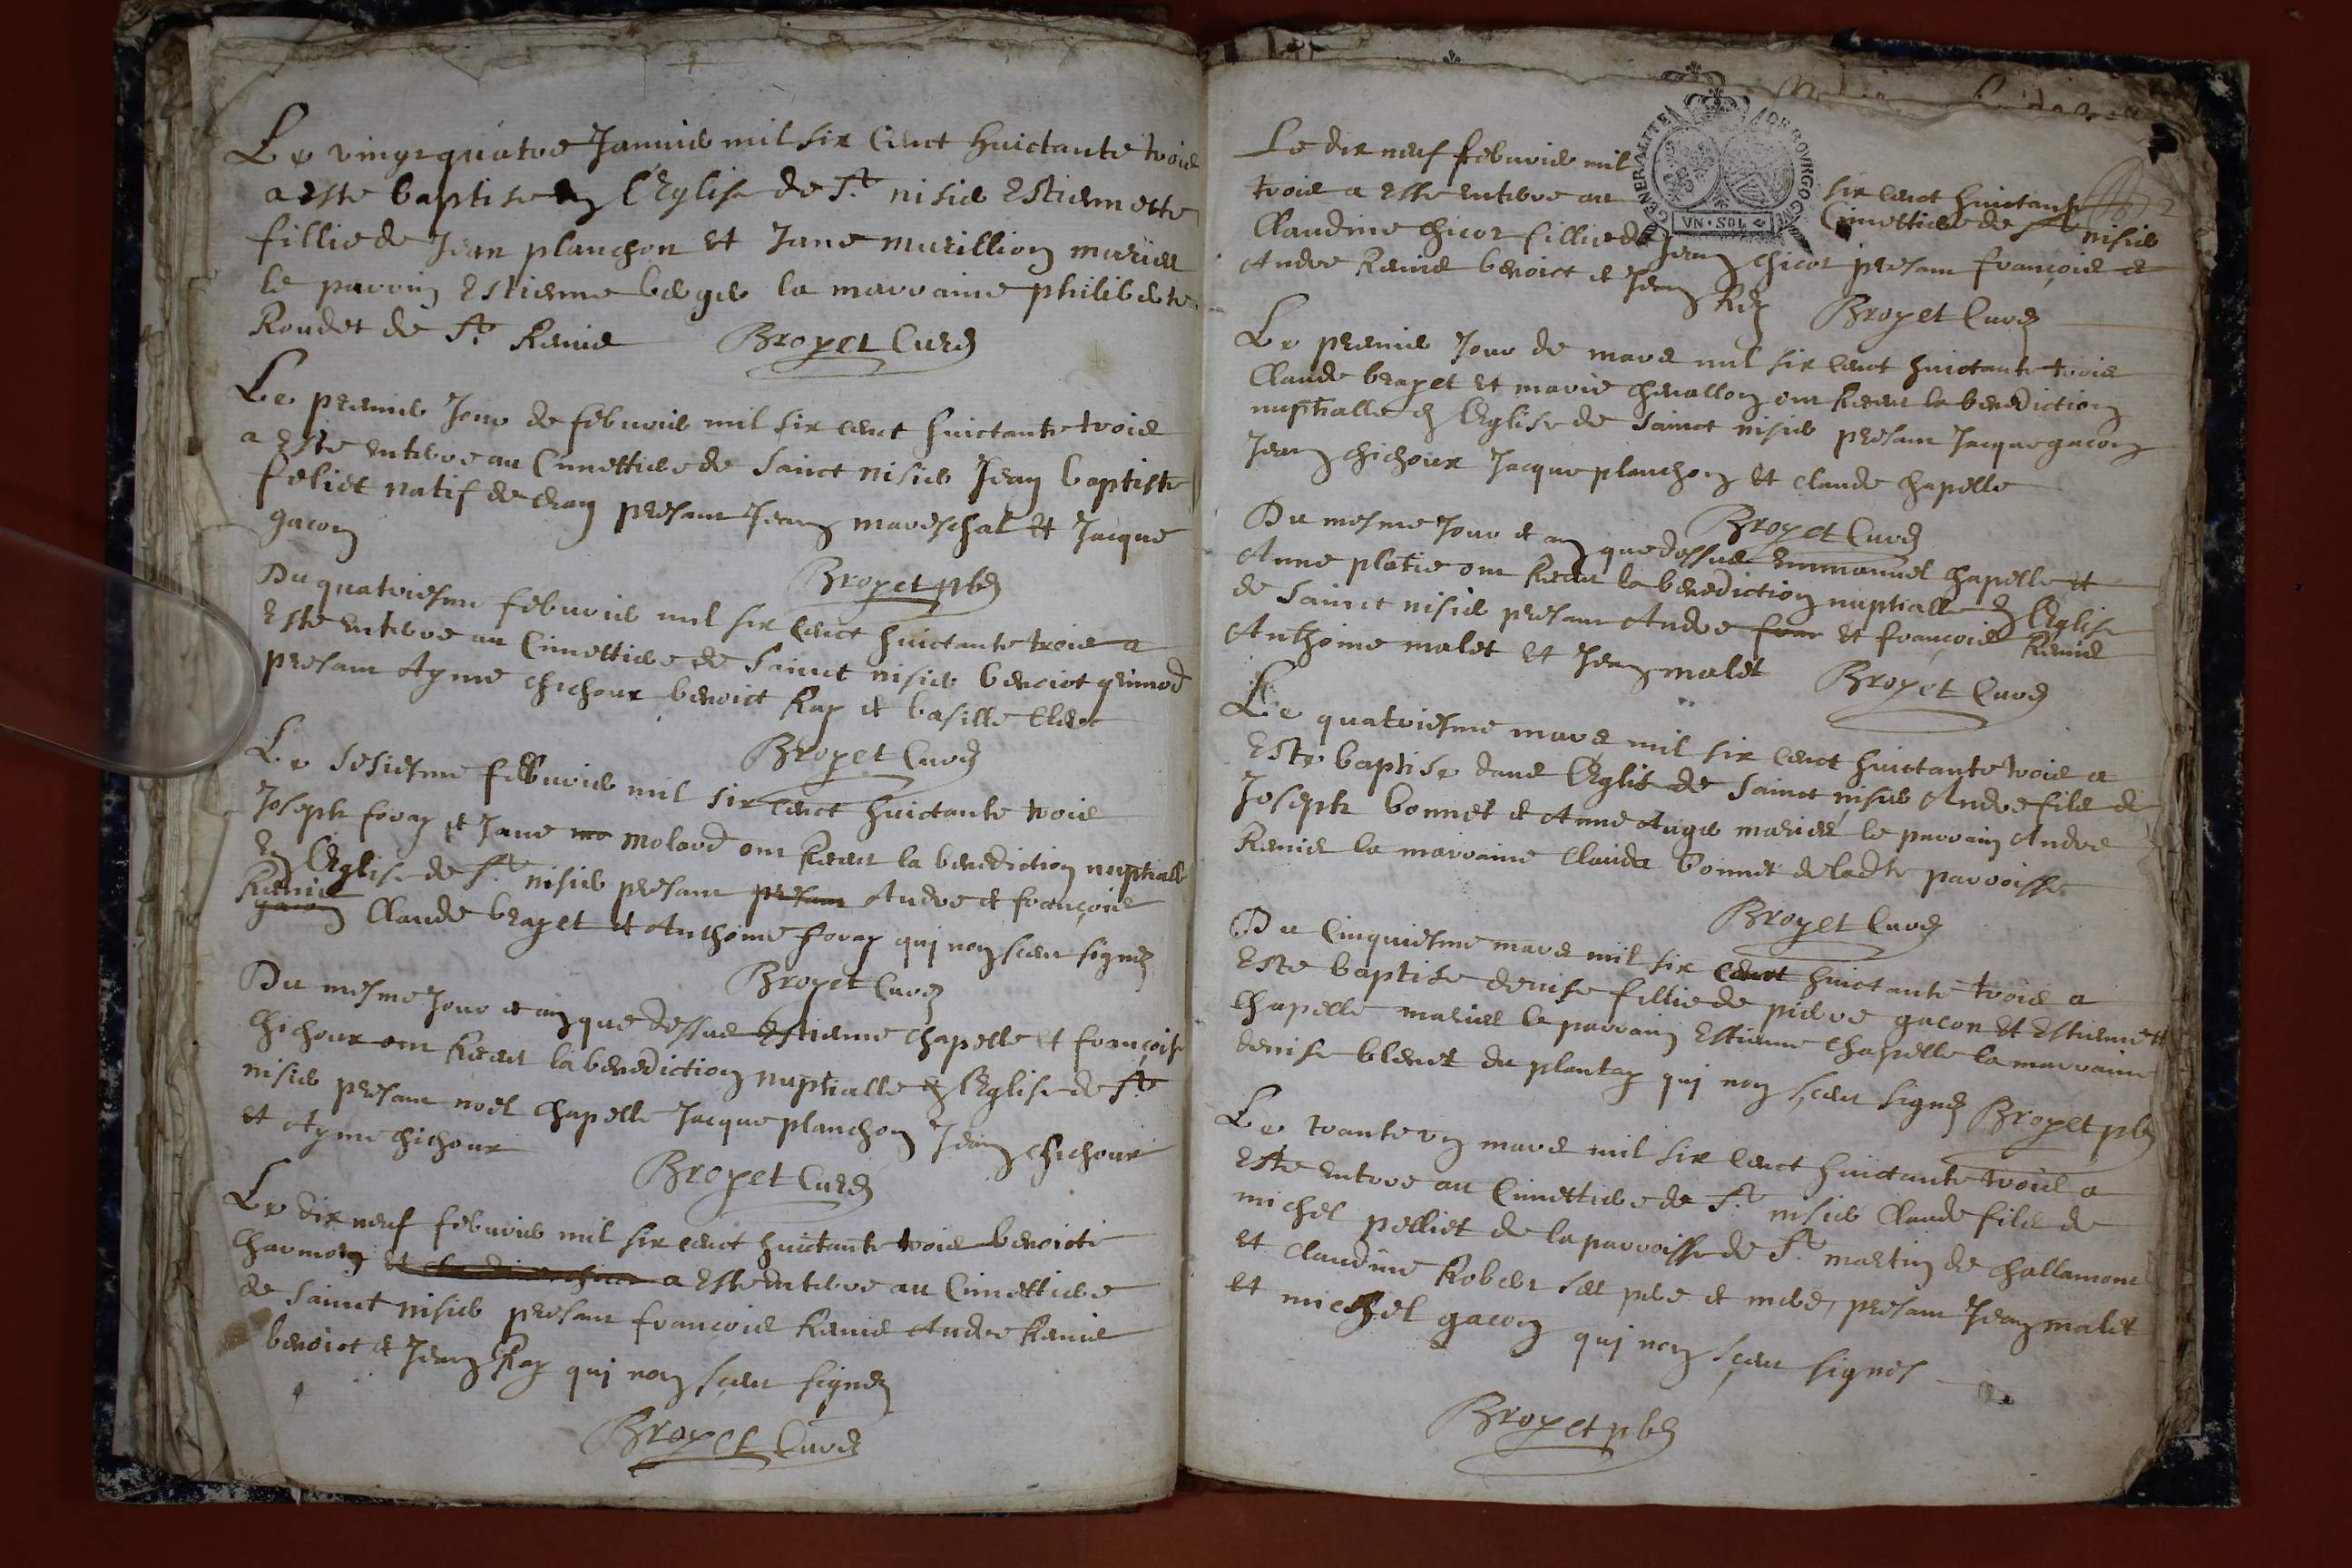 Le vingt quatre Januier mil six Cent huictante trois
a este baptisee en l'Eglise de St nisier Estiennette
fillie de Jean planchon et Jane murillion mariés
le parrin Estienne berger la marraine philiberte
Roudet de St Remis Broyet Curé
Le premier Jour de feburier mil six cent huictante trois
a este enterre au Cimettiere de Sainct nisier Jean baptiste
feliet natif de presant Jean mareschal et Jacque
gacon
Broyet pbr
Du quatriesme feburier mil six Cent huictante trois a
este enterre au Cimettiere de Sainct nisier benoict
presant Ayme chichoux benoict Ray et basille Clerc
Broyet Curé
Le sesiesme feburier mil six cent huictante trois
Joseph foray et Jane mo molard ont Receut la benediction nuptialle
en l'Eglise de St nisier presant presant Andre et françois
Remis
gacon Claude brayet et Anthoine foray qui non sceu signer
Broyet Curé
Du mesme Jour et an que dessus Estienne chapelle et françoise
chichoux ont Receut la benediction nuptialle en l'Eglise de St
nisier presant noel chapelle Jacque planchon Jean chichoux
et Ayme chichoux
Broyet Curé
Le dix neuf feburier mil six cent huictante trois benoicte
charmon et claudine chicot a este enterre au Cimettiere
de Sainct nisier presant francois Remis Andre Remis
benoict et Jean Ray qui non sceu signer
Broyet Curé
GENERALITE DE BOVRGOGNE
VN · SOL
Le dix neuf feburier mil six cent huictante
trois a este enterre au Cimettiere de St nisier
Claudine chicot fillie de Jean chicot presant françois et
Andre Remis benoict et Jean Rey Broyet Curé
Le premier Jour de mars mil six cent huictante trois
Claude brayet et marie chevallon ont Receut la benediction
nuptialle en l'Eglise de Sainct nisier presant Jacque gacon
Jean chichoux Jacque planchon et claude chapelle
Broyet Curé
Du mesme Jour et an que dessus Emmanuel chapelle et
Anne platie ont Receut la benediction nuptialle en l'Eglise
de Sainct nisier presant Andre et françois Remis
Anthoine malet et Jean malet Broyet Curé
Le quatriesme mars mil six cent huictante trois a
Este baptise dans l'Eglise de Sainct nisier Andre fils de
Joseph bonnet et Anne Auger mariés le parrain Andre
Remis la marraine Clauda bonnet de ladte parroisse
Broyet Curé
Du Cinquiesme mars mil six cent huictante trois a
Este baptise denise fillie de pierre gacon et Estiennette
chapelle mariés le parrain Estienne chapelle la marraine
denise blenet du plantay qui non sceu signer Broyet pbr
Le trante un mars mil six cent huictante trois a
este enterre au Cimettiere de St nisier Claude fils de
michel pelliet de la parroisse de St martin de challamont
et claudine Robert ses pere et mere, presant Jean malet
et michel gacon qui non sceu signer
Broyet pbr